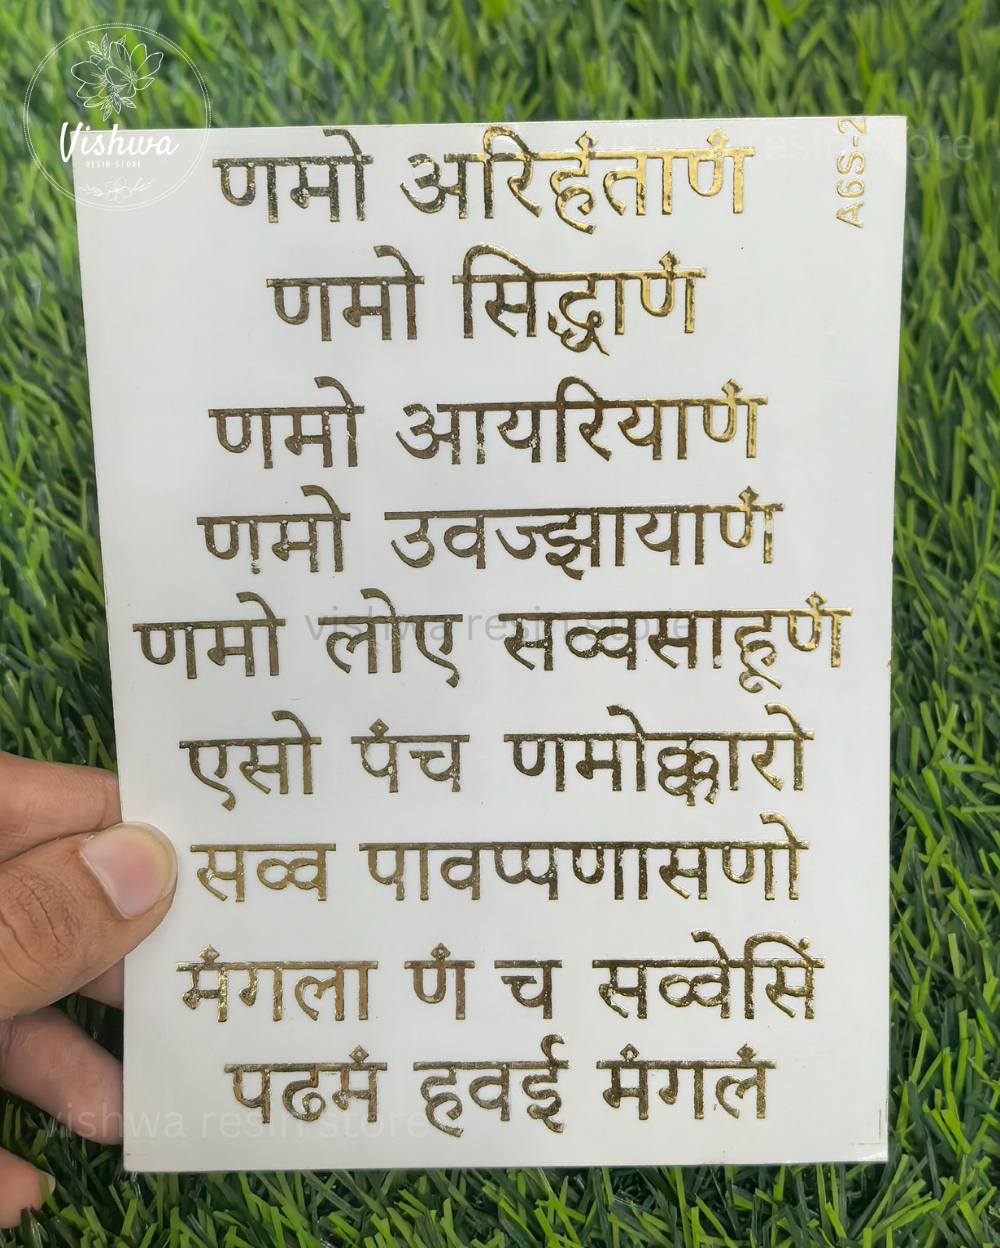 Vishwa
RESIN STORE
vishwa resin store
A6S-2
णमो अरिहंताणं
णमो सिद्धाणं
णमो आयरियाणं
णमो उवज्झायाणं
णमो लोए सव्वसाहूणं
vishwa resin store
एसो पंच णमोक्कारो
सव्व पावप्पणासणो
मंगला णं च सव्वेसिं
पढमं हवई मंगलं
vishwa resin store